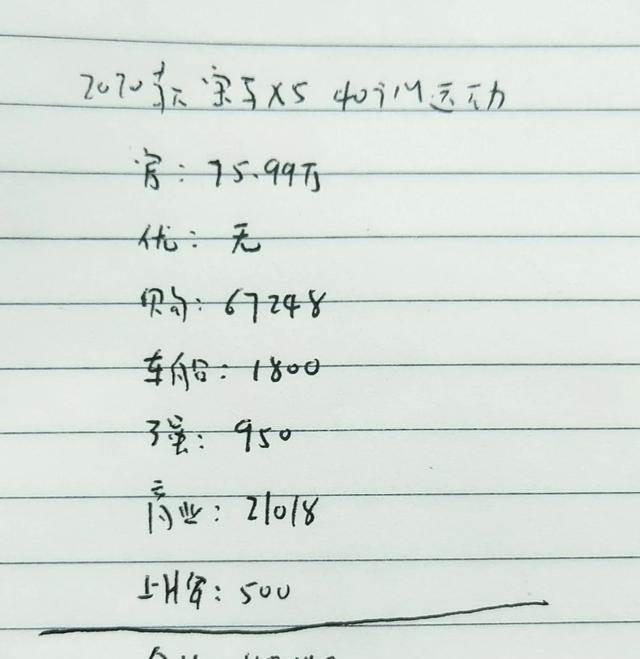 2020款宝马X5 40i M运动
官：75.99万
优：无
购：67248
车船：1800
强：950
商业：21018
上牌：500